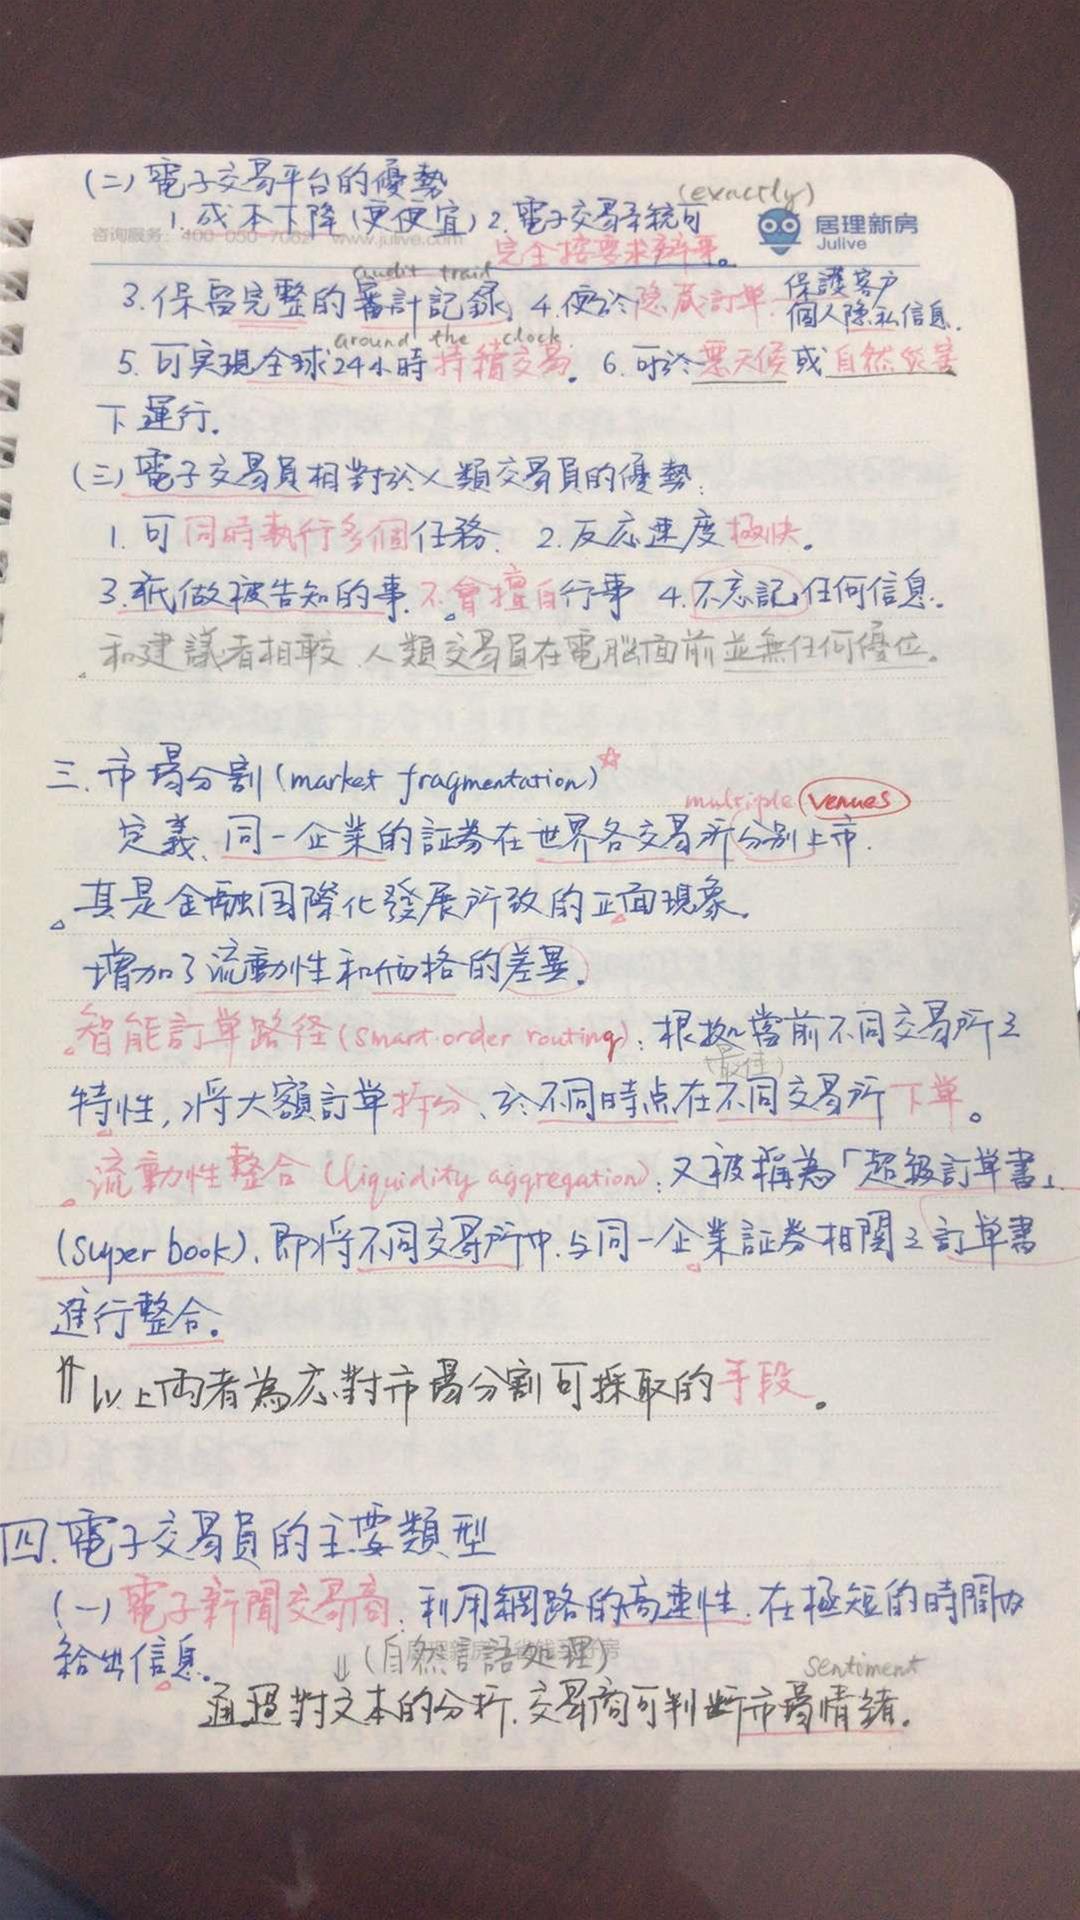 (二)電子交易平台的優勢
(exactly)
1.成本下降(更便宜) 2.電子交易系統可
居理新房
Julive
咨询服务：400-050-7062 www.julive.com
完全按要求辦事。
audit trail
3.保留完整的審計記錄 4.便於隐藏訂單.保護客戶
個人隱私信息.
around the clock
5.可実現全球24小時持續交易。 6.可於惡天候或自然災害
下運行.
(三)電子交易員相對於人類交易員的優勢:
1.可同時執行多個任務. 2.反応速度極快。
3.祇做被告知的事.不會擅自行事 4.不忘記任何信息。
和建議者相較.人類交易員在電腦面前並無任何優位。
三.市場分割(market fragmentation)☆
multiple venues
定義、同一企業的証券在世界各交易所分別上市.
其是金融国際化發展所致的正面現象。
增加了流動性和価格的差異。
智能訂單路径(smart order routing):根拠當前不同交易所之
(最佳)
特性,將大額訂單拆分、於不同時点在不同交易所下單。
流動性整合(liquidity aggregation):又被稱為「超級訂單書」
(super book).即將不同交易所中.与同一企業証券相関之訂單書
進行整合。
⇑以上両者為応對市場分割可採取的手段。
四.電子交易員的主要類型
(一)電子新聞交易商.利用網路的高速性.在極短的時間内
給出信息。
⇓(自然言語処理)
sentiment
通過對文本的分析.交易商可判断市場情緒。